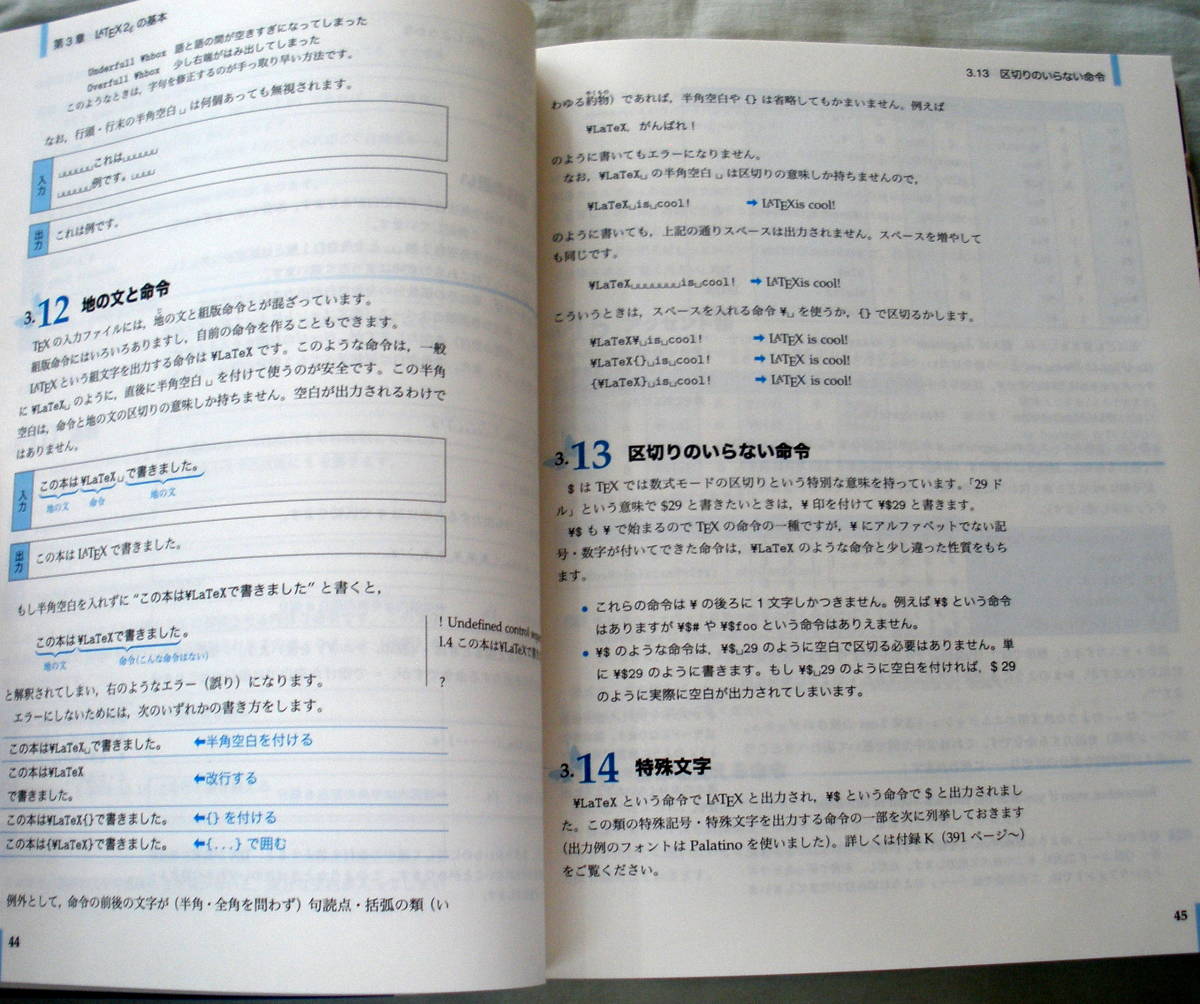 第3章 LATEX2εの基本
Underfull ¥hbox 語と語の間が空きすぎになってしまった
Overfull ¥hbox 少し右端がはみ出してしまった
このようなときは，字句を修正するのが手っ取り早い方法です。
なお，行頭・行末の半角空白␣は何個あっても無視されます。
入力
␣␣␣␣␣␣これは␣␣␣␣␣␣
␣␣␣␣␣␣例です。␣␣␣␣
出力
これは例です。
3.12 地の文と命令
TEXの入力ファイルには，地の文と組版命令とが混ざっています。
組版命令にはいろいろありますし，自前の命令を作ることもできます。
LATEXという組文字を出力する命令は¥LaTeXです。このような命令は，一般
に¥LaTeX␣のように，直後に半角空白␣を付けて使うのが安全です。この半角
空白は，命令と地の文の区切りの意味しか持ちません。空白が出力されるわけで
はありません。
入力
この本は¥LaTeX␣で書きました。
地の文 命令 地の文
出力
この本はLATEXで書きました。
もし半角空白を入れずに“この本は¥LaTeXで書きました”と書くと，
この本は¥LaTeXで書きました。
地の文 命令(こんな命令はない)
! Undefined control
l.4 この本は¥LaTeXで
?
と解釈されてしまい，右のようなエラー（誤り）になります。
エラーにしないためには，次のいずれかの書き方をします。
この本は¥LaTeX␣で書きました。 ←半角空白を付ける
この本は¥LaTeX
で書きました。 ←改行する
この本は¥LaTeX{}で書きました。 ←{}を付ける
この本は{¥LaTeX}で書きました。 ←{...}で囲む
例外として，命令の前後の文字が（半角・全角を問わず）句読点・括弧の類（い
44
3.13 区切りのいらない命令
わゆる約物）であれば，半角空白や{}は省略してもかまいません。例えば
¥LaTeX，がんばれ！
のように書いてもエラーになりません。
なお，¥LaTeX␣の半角空白␣は区切りの意味しか持ちませんので，
¥LaTeX␣is␣cool! → LATEXis cool!
のように書いても，上記の通りスペースは出力されません。スペースを増やして
も同じです。
¥LaTeX␣␣␣␣␣␣␣is␣cool! → LATEXis cool!
こういうときは，スペースを入れる命令¥␣を使うか，{}で区切るかします。
¥LaTeX¥␣is␣cool! → LATEX is cool!
¥LaTeX{}␣is␣cool! → LATEX is cool!
{¥LaTeX}␣is␣cool! → LATEX is cool!
3.13 区切りのいらない命令
$はTEXでは数式モードの区切りという特別な意味を持っています。「29ド
ル」という意味で$29と書きたいときは，¥印を付けて¥$29と書きます。
¥$も¥で始まるのでTEXの命令の一種ですが，¥にアルファベットでない記
号・数字が付いてできた命令は，¥LaTeXのような命令と少し違った性質をもち
ます。
● これらの命令は¥の後ろに1文字しかつきません。例えば¥$という命令
はありますが¥$#や¥$fooという命令はありえません。
● ¥$のような命令は，¥$␣29のように空白で区切る必要はありません。単
に¥$29のように書きます。もし¥$␣29のように空白を付ければ，$ 29
のように実際に空白が出力されてしまいます。
3.14 特殊文字
¥LaTeXという命令でLATEXと出力され，¥$という命令で$と出力されまし
た。この類の特殊記号・特殊文字を出力する命令の一部を次に列挙しておきます
（出力例のフォントはPalatinoを使いました）。詳しくは付録K（391ページ〜）
をご覧ください。
45